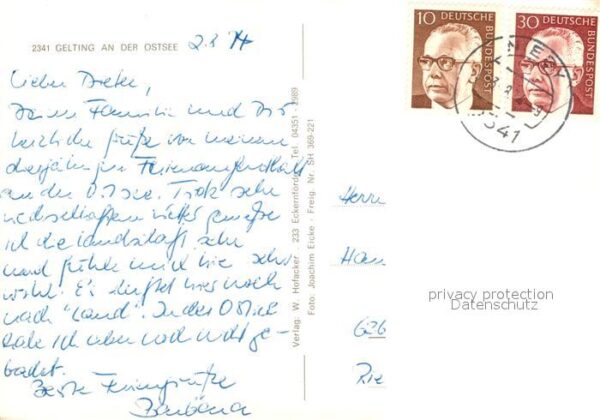 2341 GELTING AN DER OSTSEE
2.8.74
Lieber Dieter,
Deine Familie und Dich
herzliche Grüße von meinem
diesjährigen Ferienaufenthalt
an der Ostsee. Trotz sehr
wechselhaften Wetters genieße
ich die Landschaft sehr
und fühle mich hier sehr
wohl. Es duftet hier noch
nach "Land". In der Ostsee
habe ich aber noch nicht ge-
badet.
Beste Feriengrüße
Barbara
Verlag: W. Hofacker · 233 Eckernförde, Tel. 04351 · 2989
Foto: Joachim Eicke · Freig. Nr. SH 369-221
10 DEUTSCHE BUNDESPOST
30 DEUTSCHE BUNDESPOST
2341
Herrn
Han
626
privacy protection
Datenschutz